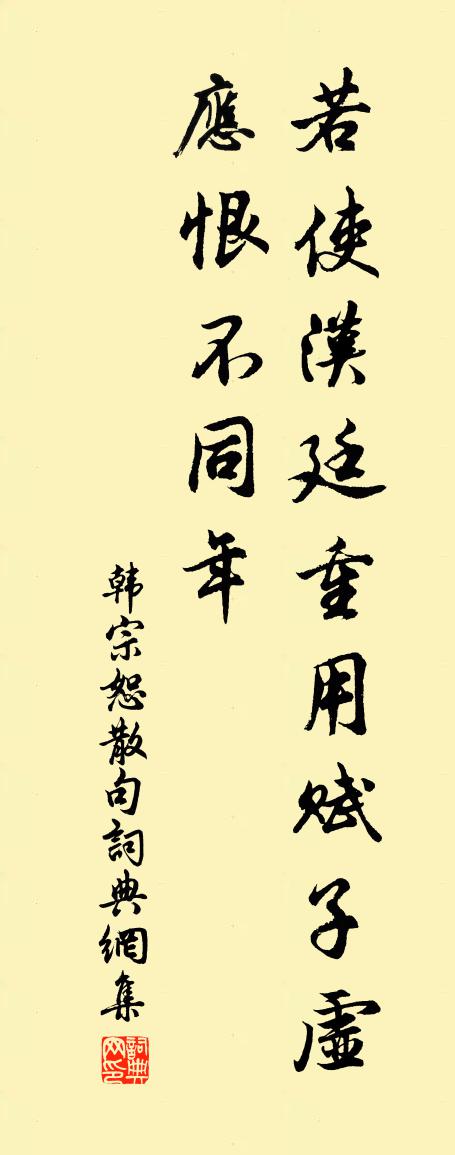 若使漢廷重用赋子虛
應恨不同年
韩宗恕散句詞典網集
詞典网印